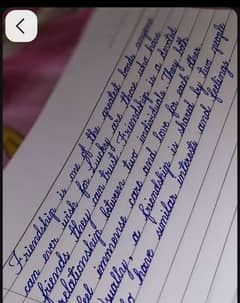 Friendship is one of the greatest bonds anyone
can ever wish for. Lucky are those who have
friends they can trust. Friendship is a devoted
relationship between two individuals. They both
feel immense care and love for each other.
Usually, a friendship is shared by two people
who have similar interests and feelings